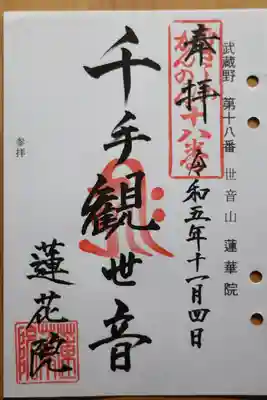 武蔵野 第十八番 世音山 蓮華院
奉拝
令和五年十一月四日
千手観世音
蓮花院
参拝